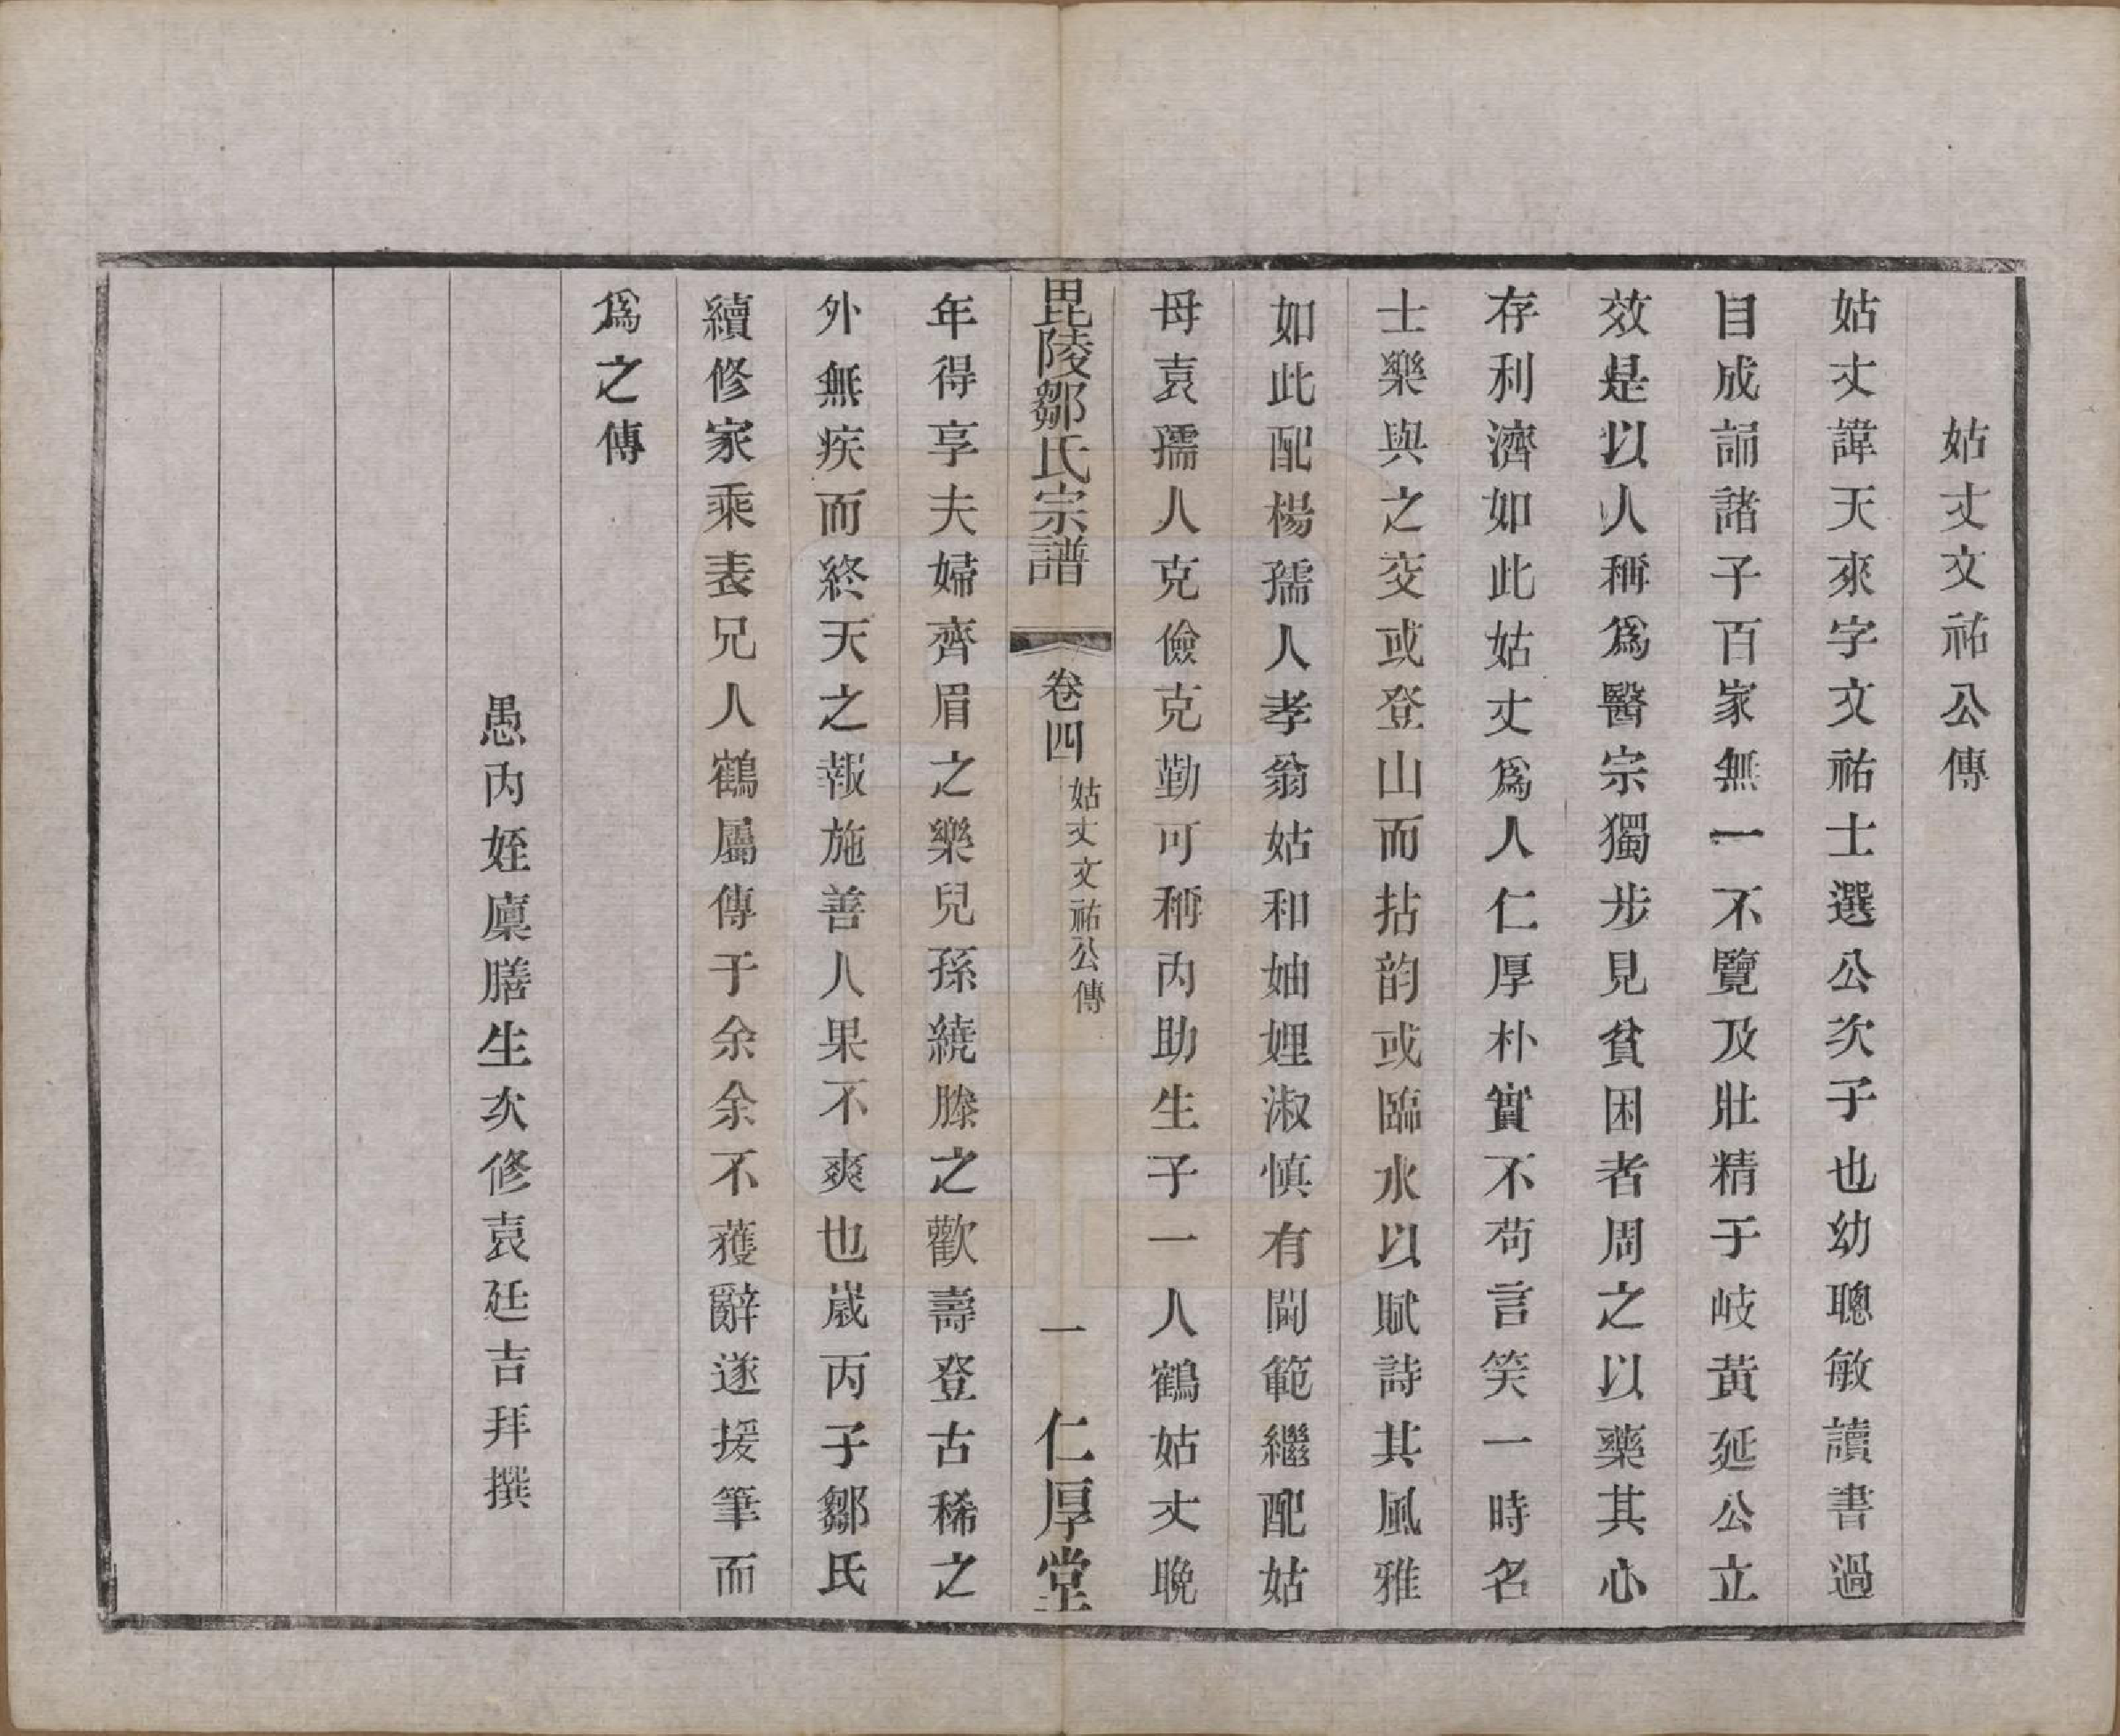 姑丈文祐公傳
姑丈諱天來字文祐士選公次子也幼聰敏讀書過
目成誦諸子百家無一不覽及壯精于岐黃延公立
效是以人稱爲醫宗獨步見貧困者周之以藥其心
存利濟如此姑丈爲人仁厚朴實不苟言笑一時名
士樂與之交或登山而拈韵或臨水以賦詩其風雅
如此配楊孺人孝翁姑和妯娌淑慎有閫範繼配姑
母袁孺人克儉克勤可稱內助生子一人鶴姑丈晚
毘陵鄒氏宗譜
卷四
姑丈文祐公傳
一
仁厚堂
年得享夫婦齊眉之樂兒孫繞膝之歡壽登古稀之
外無疾而終天之報施善人果不爽也嵗丙子鄒氏
續修家乘表兄人鶴屬傳于余余不獲辭遂援筆而
爲之傳
愚內姪廩膳生次修袁廷吉拜撰